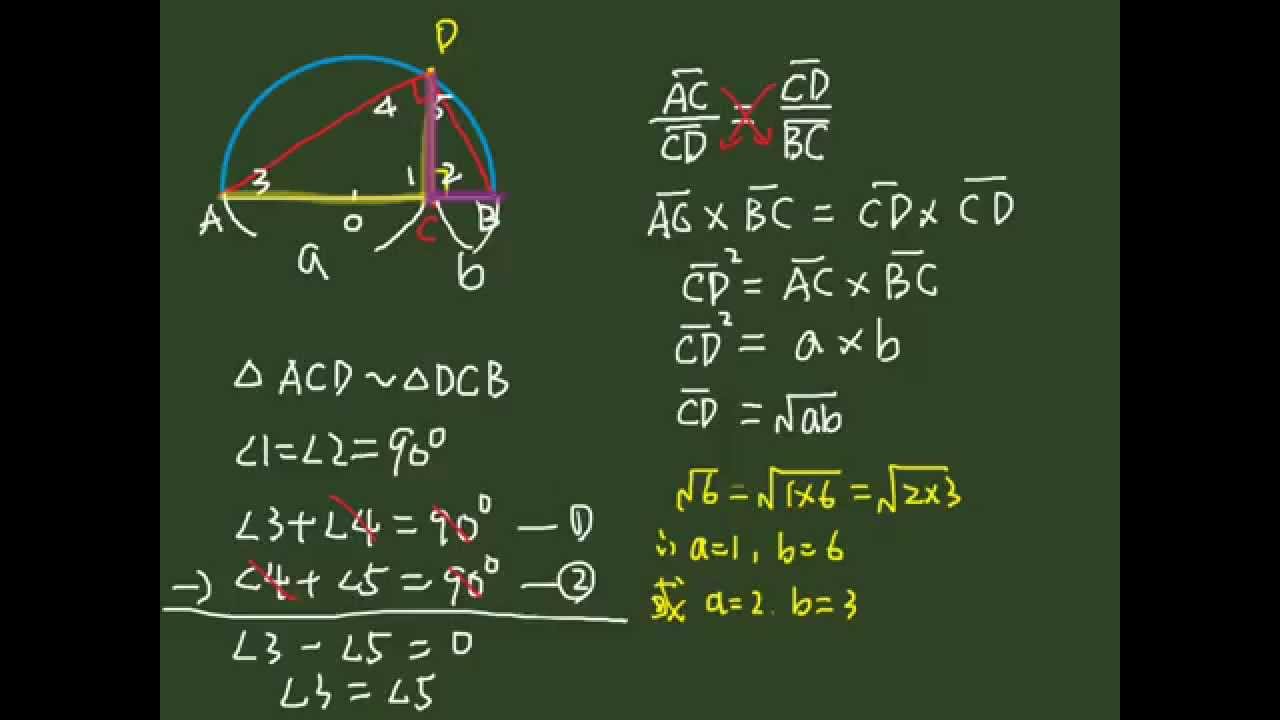 D
4 5
3 1 2
A O C B
a b
△ACD~△DCB
∠1=∠2=90°
∠3+∠4=90° —①
-) ∠4+∠5=90° —②
∠3-∠5=0
∠3=∠5
A̅C̅/C̅D̅ = C̅D̅/B̅C̅
A̅C̅×B̅C̅=C̅D̅×C̅D̅
C̅D̅²=A̅C̅×B̅C̅
C̅D̅²=a×b
C̅D̅=√ab
√6=√1×6=√2×3
∴a=1, b=6
a=2. b=3